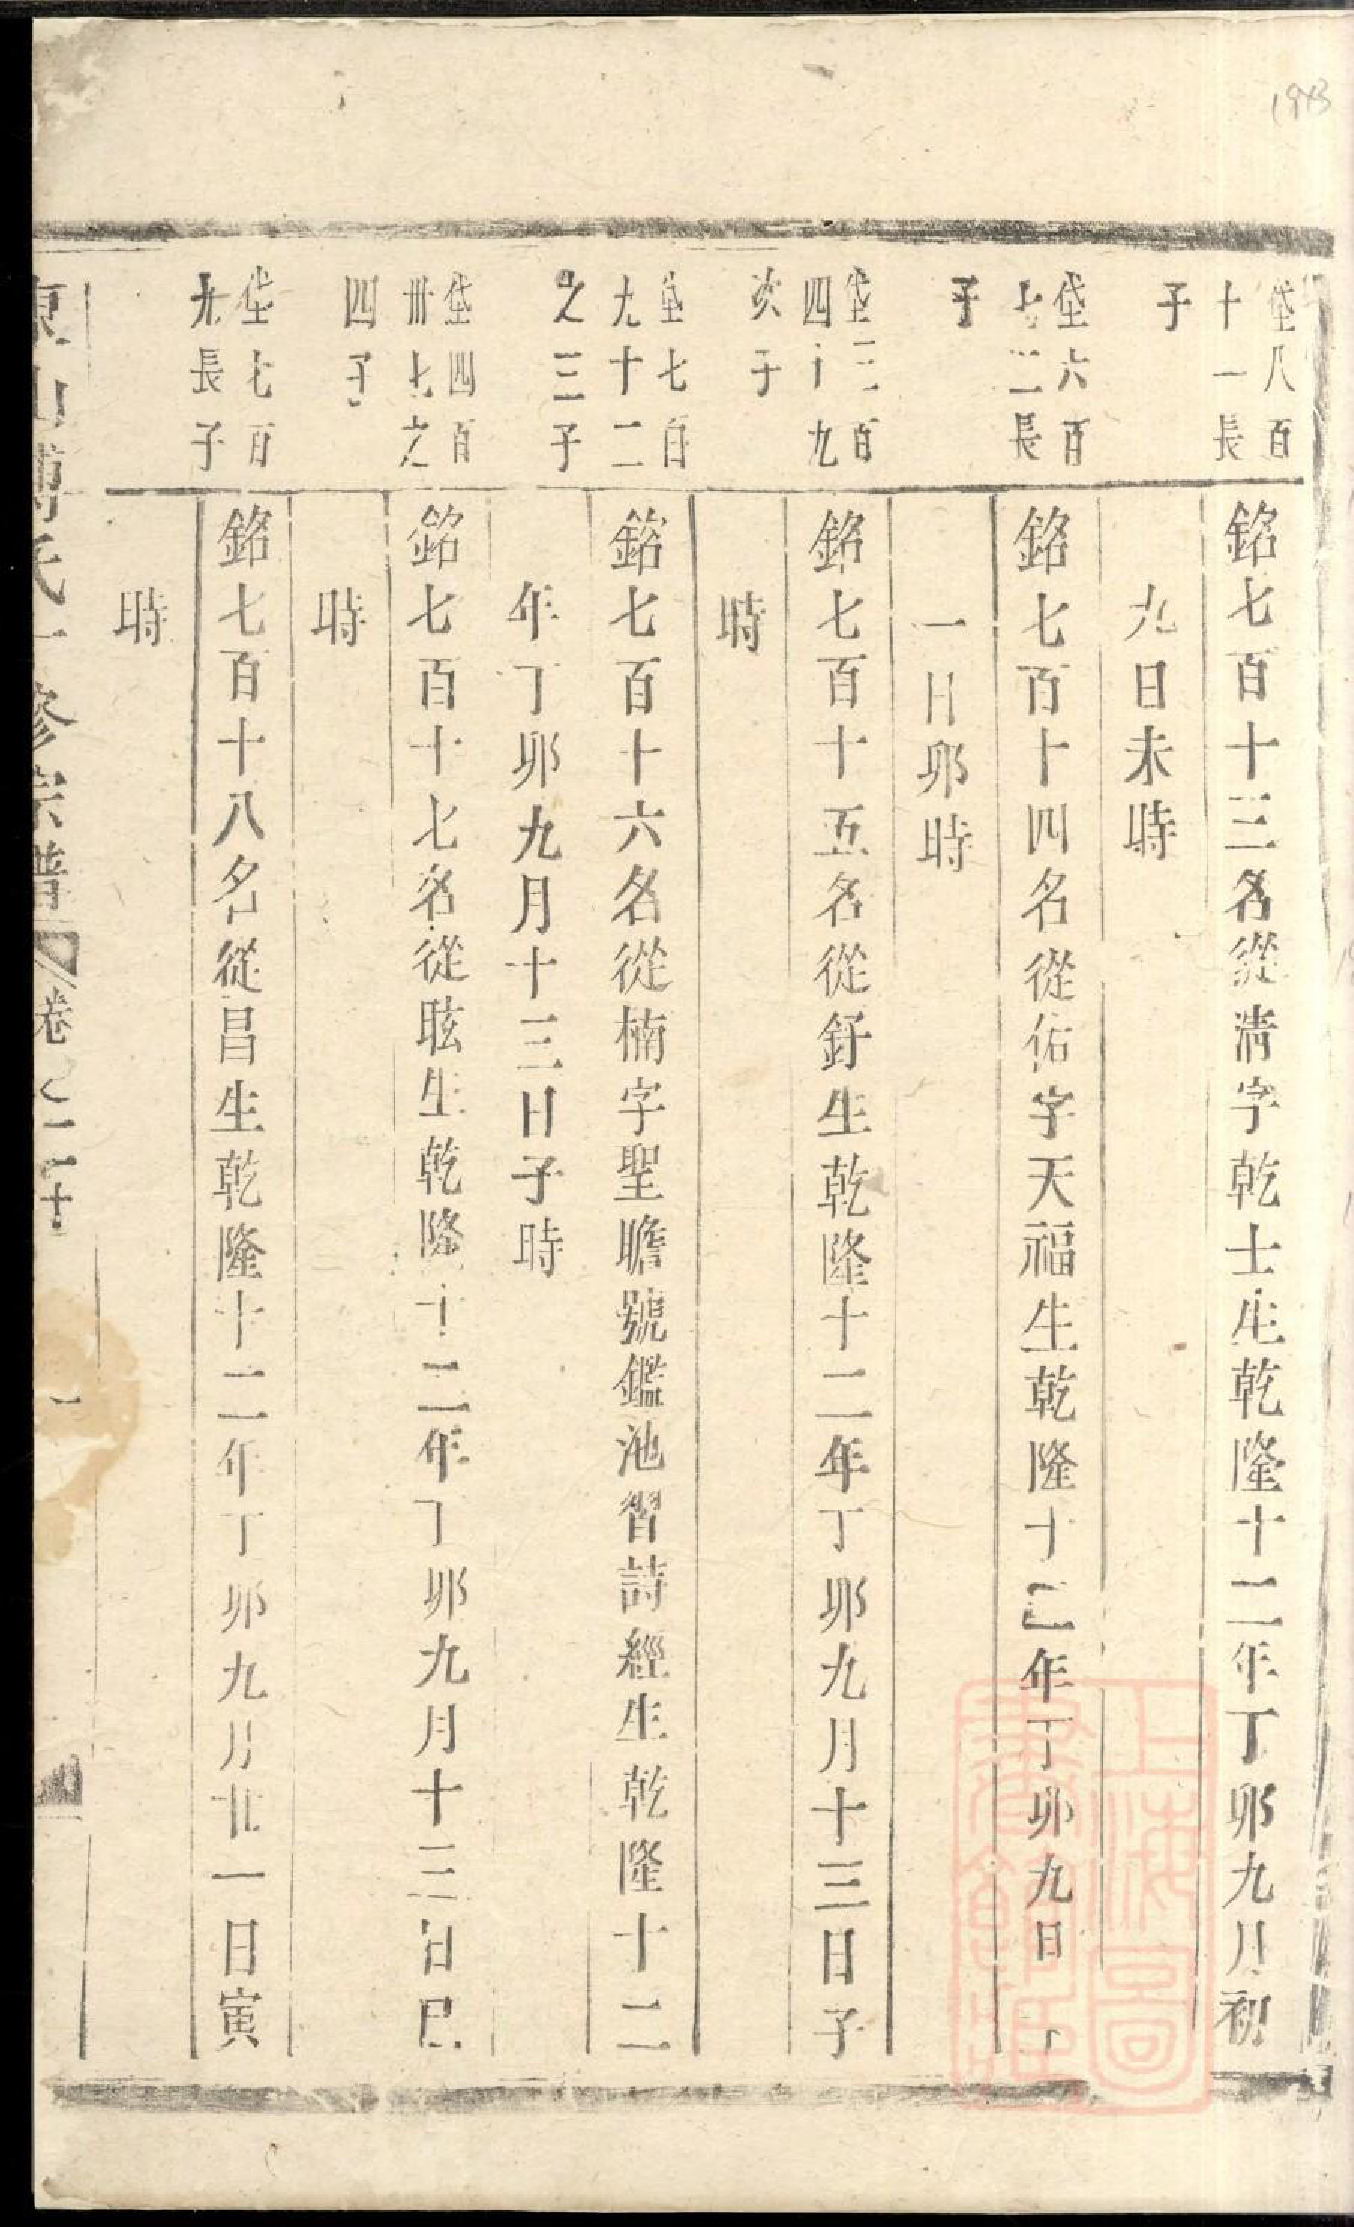 垈八百
十一長
子
銘七百十三名從淸字乾士生乾隆十二年丁卯九月初
九日未時
垈六百
七二長
子
銘七百十四名從佑字天福生乾隆十二年丁卯九日十
一日卯時
垈三百
四十九
次子
銘七百十五名從釪生乾隆十二年丁卯九月十三日子
時
垈七百
九十二
之三子
銘七百十六名從楠字聖瞻號鑑池習詩經生乾隆十二
年丁卯九月十三日子時
垈四百
卌七之
四子
銘七百十七名從眩生乾隆十二年丁卯九月十三日巳
時
垈七百
九長子
銘七百十八名從昌生乾隆十二年丁卯九月廿一日寅
時
東山傅氏 修宗譜 卷之二十
上海圖
書館藏